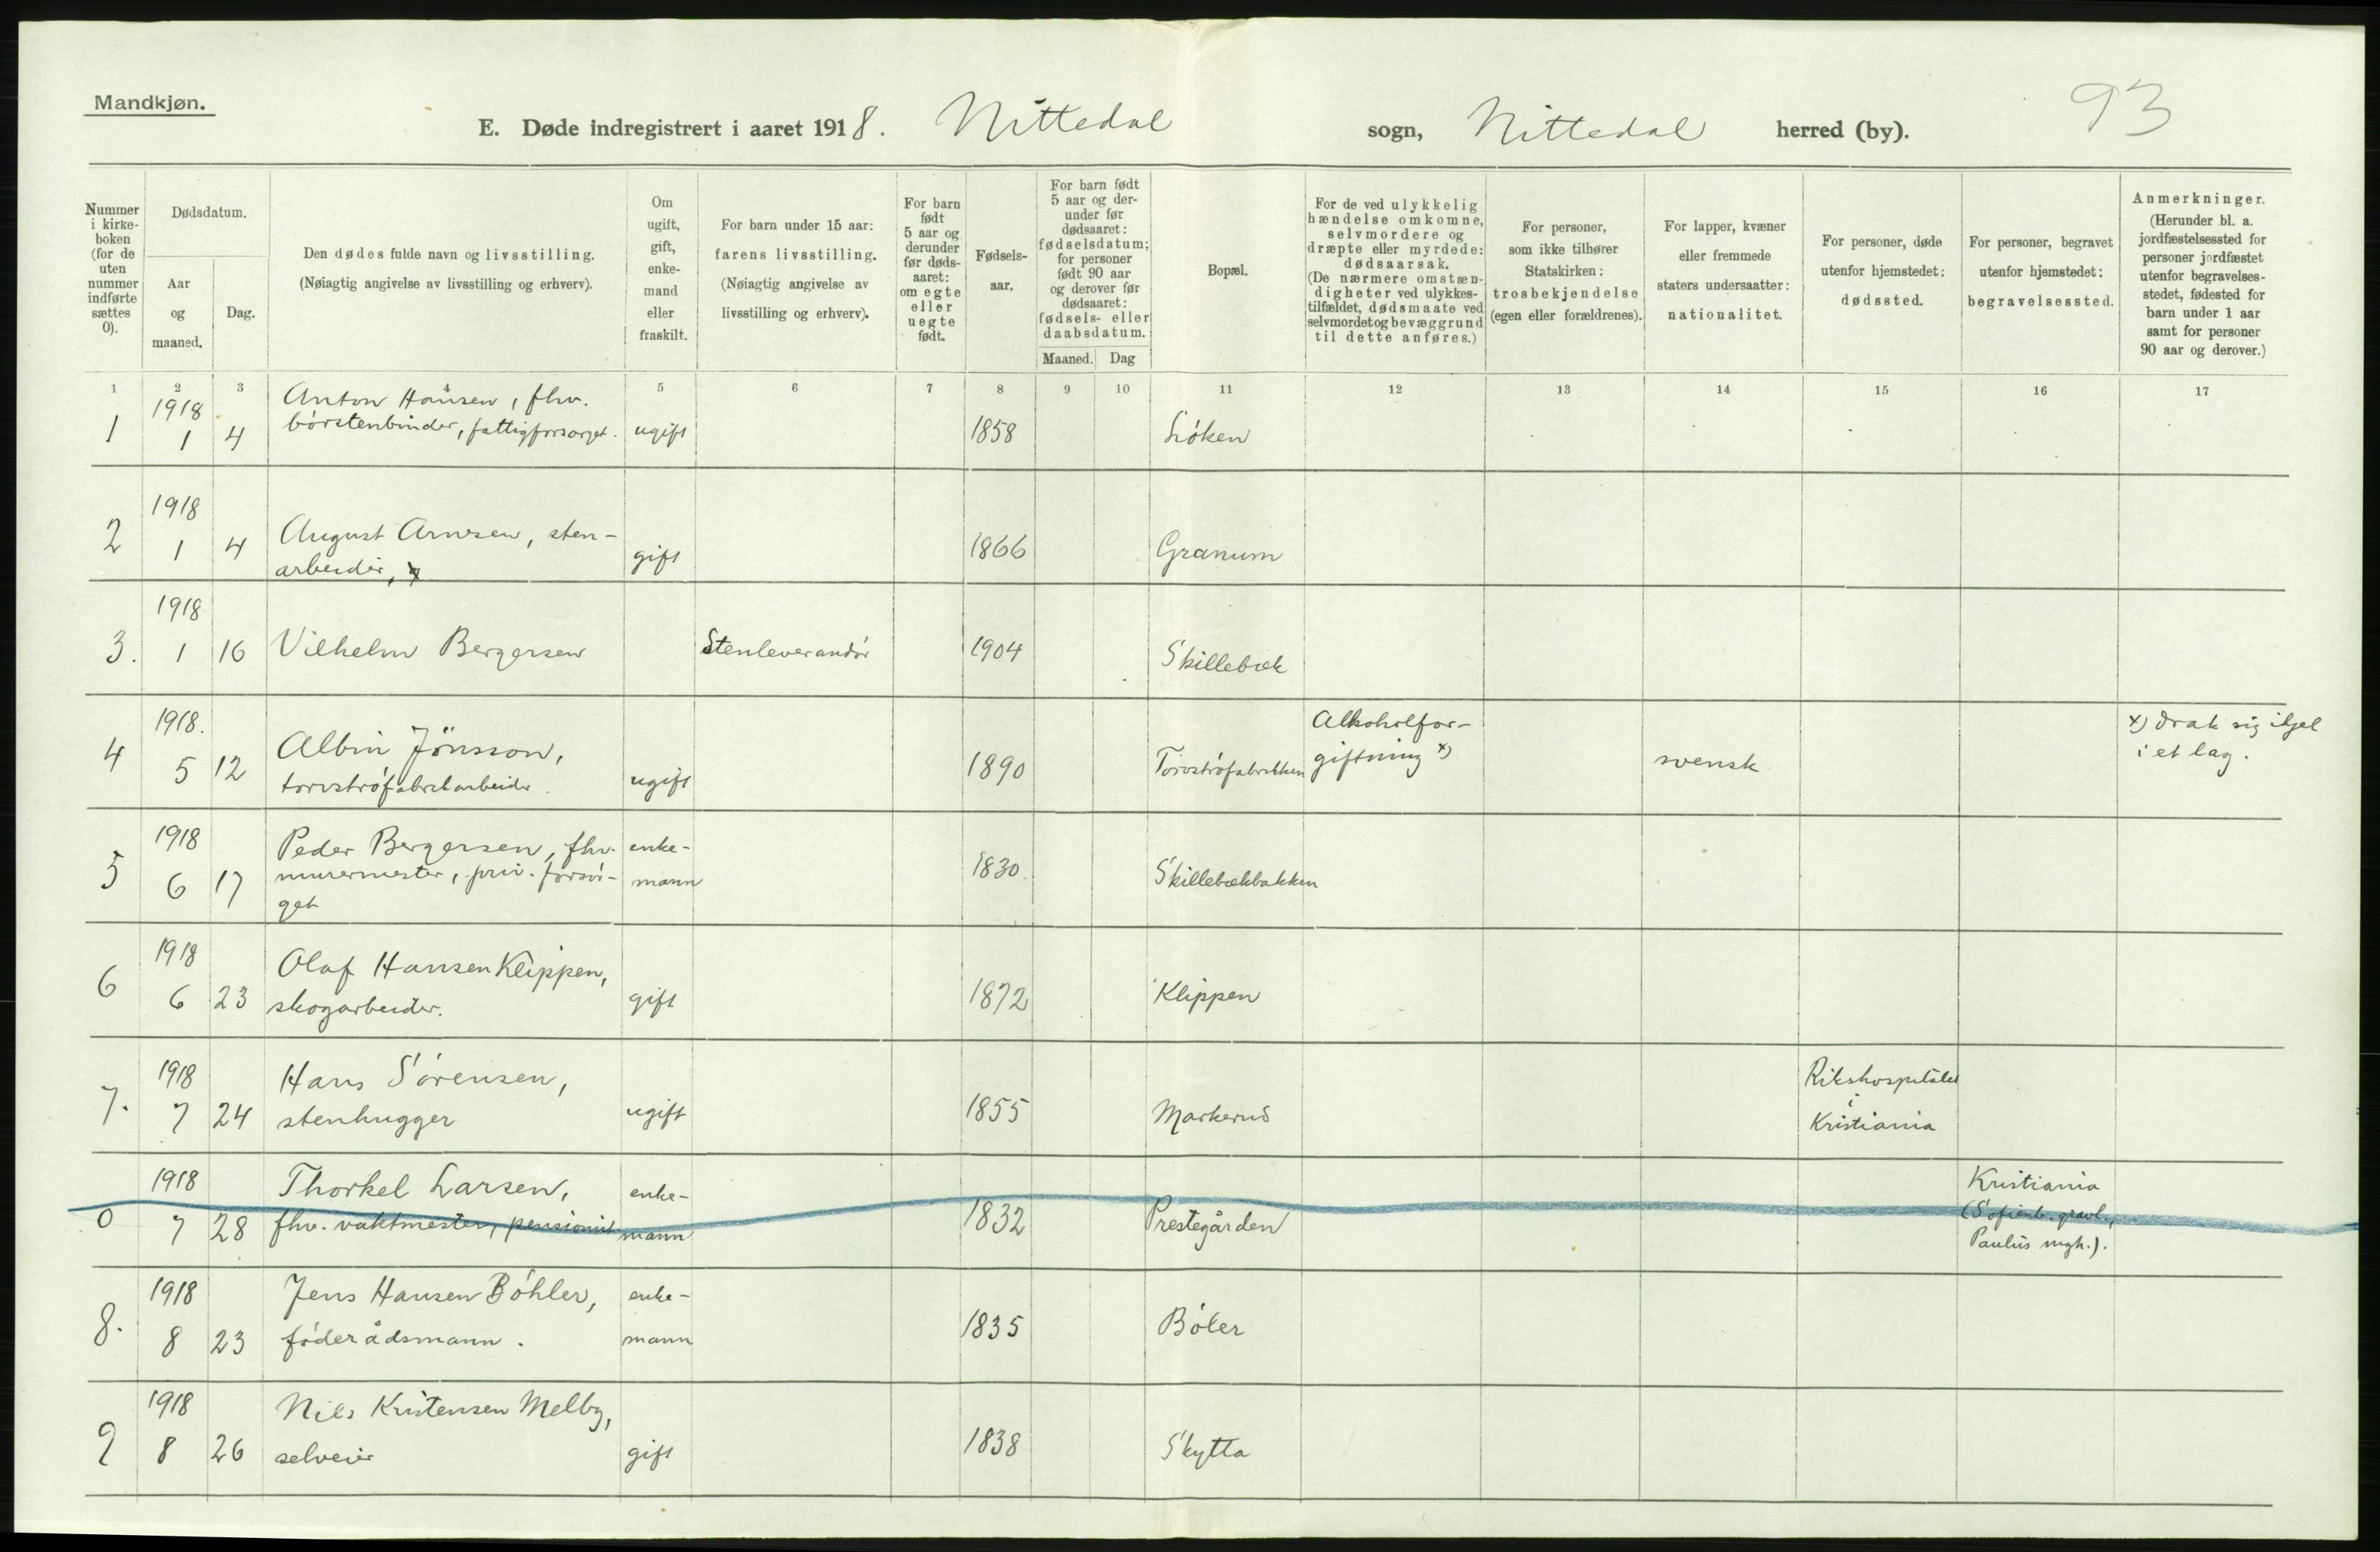 Mandkjøn.
93
E. Døde indregistrert i aaret 1918. Nittedal sogn, Nittedal herred (by).
Nummer i kirke-boken (for de uten nummer indførte sættes 0).
Dødsdatum.
Aar og maaned.
Dag.
Den dødes fulde navn og livsstilling.
(Nøiagtig angivelse av livsstilling og erhverv).
Om ugift, gift, enke-mand eller fraskilt.
For barn under 15 aar:
farens livsstilling.
(Nøiagtig angivelse av livsstilling og erhverv).
For barn født 5 aar og derunder før døds-aaret: om egte eller uegte født.
Fødsels-aar.
For barn født 5 aar og der-under før dødsaaret: fødselsdatum; for personer født 90 aar og derover før dødsaaret: fødsels- eller daabsdatum.
Maaned. Dag
Bopæl.
For de ved ulykkelig hændelse omkomne, selvmordere og dræpte eller myrdede: dødsaarsak.
(De nærmere omstæn-digheter ved ulykkes-tilfældet, dødsmaate ved selvmordet og bevæggrund til dette anføres.)
For personer, som ikke tilhører Statskirken: trosbekjendelse (egen eller forældrenes).
For lapper, kvæner eller fremmede staters undersaatter: nationalitet.
For personer, døde utenfor hjemstedet: dødssted.
For personer, begravet utenfor hjemstedet: begravelsessted.
Anmerkninger.
(Herunder bl. a. jordfæstelsessted for personer jordfæstet utenfor begravelses-stedet, fødested for barn under 1 aar samt for personer 90 aar og derover.)
1 2 3 4 5 6 7 8 9 10 11 12 13 14 15 16 17
1918 Anton Hansen, fhv.
1 1 4 børstenbinder, fattigforsørget. ugift 1858 Løken
1918
2 1 4 August Arnesen, sten-
arbeider, gift 1866 Granum
1918
3. 1 16 Vilhelm Bergersen Stenleverandør 1904 Skillebæk
1918. Alkoholfor- x) drak sig ihjel
4 5 12 Albin Jönsson, giftning x) i et lag.
torvstrøfabrikarbeider. ugift 1890 Torvstrøfabrikken svensk
1918 Peder Bergersen, fhv. enke-
5 6 17 murermester, priv. forsør- mann 1830. Skillebækbakken
get
1918 Olaf Hansen Klippen,
6 6 23 skogarbeider. gift 1872 Klippen
1918 Hans Sørensen, Rikshospitalet
i
7. 7 24 stenhugger ugift 1855 Markerud Kristiania
1918 Thorkel Larsen, enke- Kristiania
0 7 28 fhv. vaktmester, pensionist mann 1832 Prestegården (Sofienb. gravl.,
Paulus mgh.).
1918 Jens Hansen Bøhler, enke-
8. 8 23 føderådsmann. mann 1835 Bøler
1918 Nils Kristensen Melby,
9 8 26 selveier gift 1838 Skytta